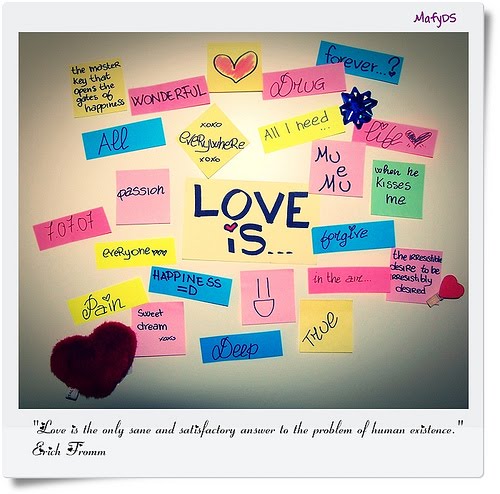 MafyDS
the master
key that
opens the
gates of
happiness
WONDERFUL
DRUG
forever...?
All
xoxo
everywhere
xoxo
All I need...
life
passion
MU
e
MU
when he
kisses
me
LOVE
iS...
7.07.07
everyone
forgive
HAPPINESS
=D
in the air...
the irresistible
desire to be
irresistibly
desired
Pain
sweet
dream
xoxo
=D
Deep
True
"Love is the only sane and satisfactory answer to the problem of human existence."
Erich Fromm